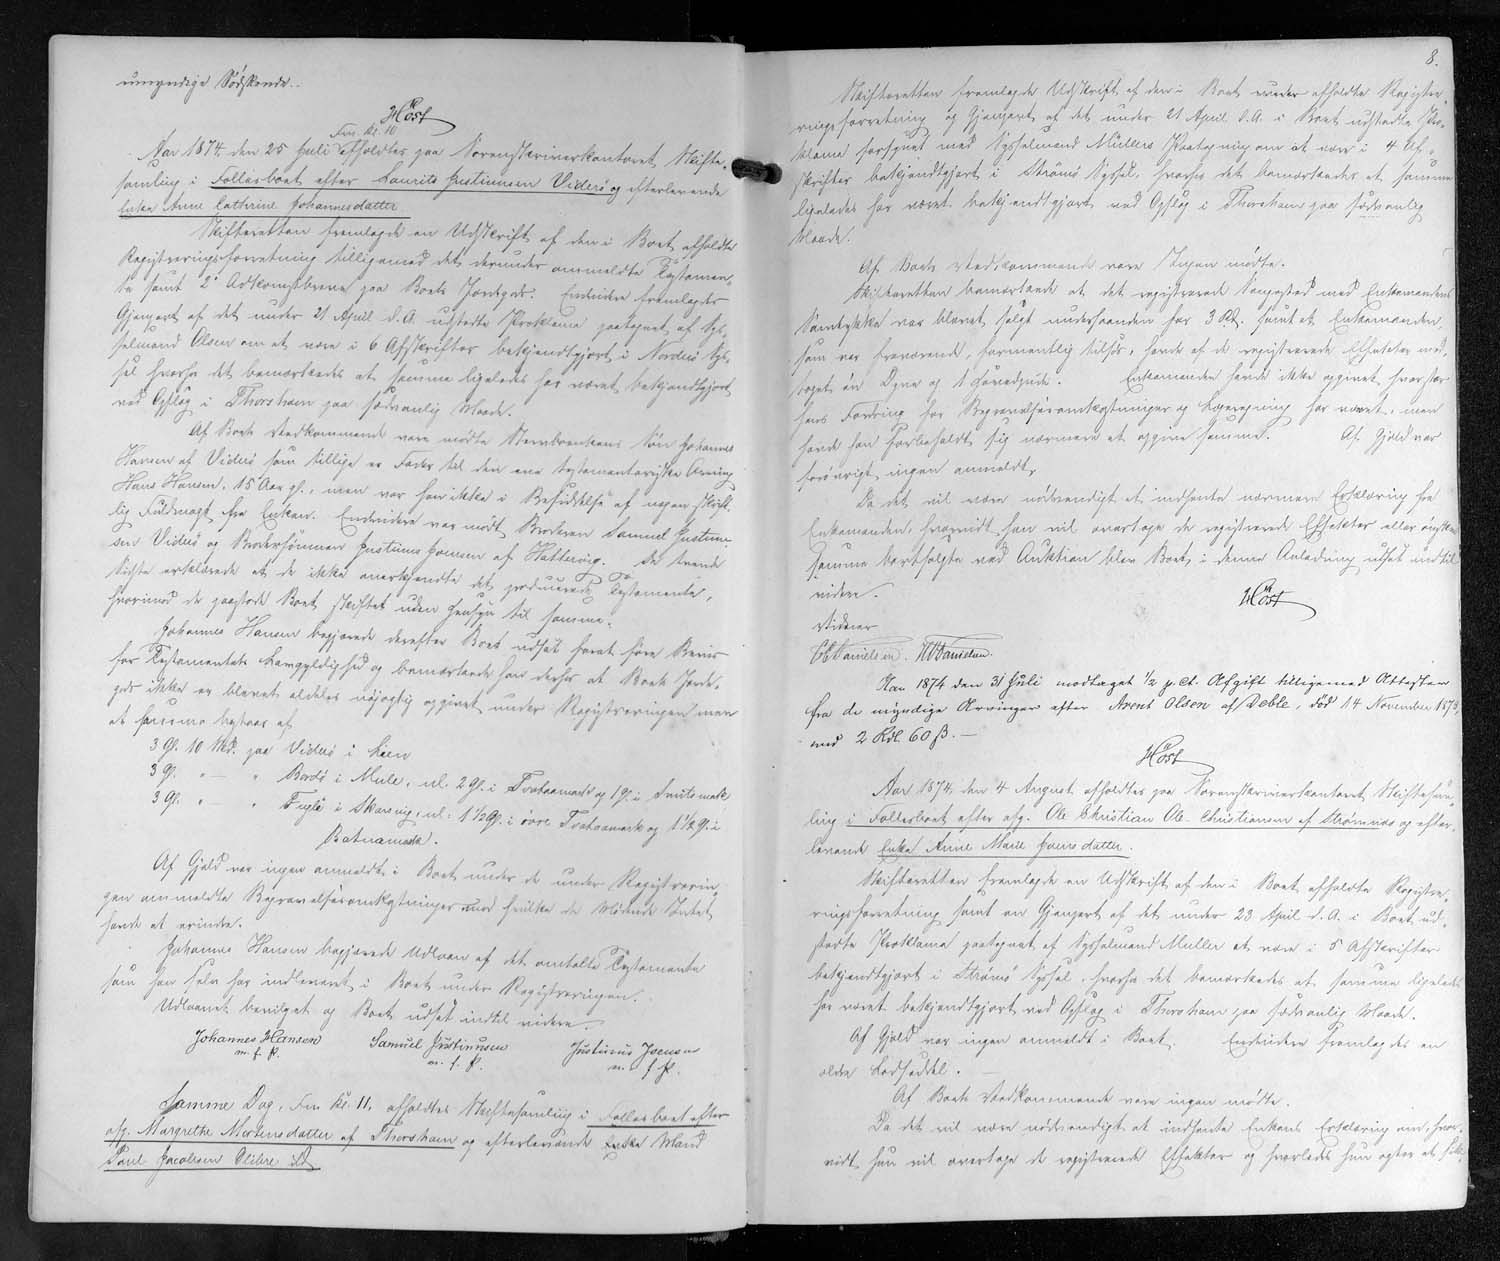 umyndige Sødskende.
Høst
Fm. Kl. 10
Aar 1874, den 25 Juli afholdtes paa Sorenskriverkontoret Skifte-
samling i Fællesboet efter Laurits Justinusen Viderø og efterlevende
Enke Anne Cathrine Johannesdatter.
Skifteretten fremlagde en Udskrift af den i Boet afholdte
Registreringsforretning tilligemed det derunder ommeldte Testamen-
te samt 2 Adkomstbreve paa Boets Jordegods. Endvidere fremlagdes
Gjenpart af det under 21 April d.A. udstedte Proklama paategnet af Sys-
selmand Olsen om at være i 6 Afskrifter bekjendtgjort i Norderø Sys-
sel hvorfra det bemærkedes at samme ligeledes har været bekjendtgjort
ved Opslag i Thorshavn paa sædvanlig Maade.
Af Boets Vedkommende vare mødte Stervboenkens Søn Johannes
Hansen af Viderø som tillige er Fader til den ene testamentariske Arving
Hans Hansen, 15 Aar gl., men var han ikke i Besiddelse af nogen skrift-
lig Fuldmagt fra Enken. Endvidere var mødt Broderen Samuel Justinu-
sen Viderø og Brodersønnen Justinus Joensen af Hattervig. De tvende
Sidste erklærede at de ikke anerkjendte det producerede Testamente,
hvorimod de paastode Boet skiftet uden Hensyn til samme.
Johannes Hansen begjærede derefter Boet udsat forat føre Beviis
for Testamentets Lovgyldighed og bemærkede han derhos at Boets Jorde-
gods ikke er blevet aldeles nøjagtig opgivet under Registreringen men
at samme bestaar af
3 Gl. 10 Skd. paa Viderø i Lien
3 Gl. " — " Bordø i Mule, nl. 2 Gl. i Trodamark og 1 Gl. i
3 Gl. " — " Fuglø i Skarvig, nl: 1½ Gl. i øvre og 1½ Gl. i
Af Gjæld var ingen anmeldt i Boet under de under Registrerin-
gen ommeldte Begravelsesomkostninger mod hvilke de Mødende Intet
havde at erindre.
Johannes Hansen begjærede Udlaan af det omtalte Testamente
som han selv har indleveret i Boet under Registreringen.
Udlaanet bevilget og Boet udsat indtil videre
Johannes Hansen Samuel Justinussen Justinus Joensen
m. f. P. m. f. P. m. f. P.
Samme Dag, Fm. Kl. 11, afholdtes Skiftesamling i Fællesboet efter
afg. Margrethe Mortensdatter af Thorshavn og efterlevende Enke Mand
Poul Jacobsen
8.
Skifteretten fremlagde Udskrift af den i Boet under afholdte Registre-
ringsforretning og Gjenpart af det under 21 April d.A. i Boet udstedte Pro-
klama forsynet med Sysselmand Müllers Paategning om at være i 4 Af-
skrifter bekjendtgjort i Strømø Syssel, hvorfra det bemærkedes at samme
ligeledes har været bekjendtgjort ved Opslag i Thorshavn paa sædvanlig
Maade.
Af Boets Vedkommende vare Ingen mødte.
Skifteretten bemærkede at det registrerede Sengested med Enkemandens
Samtykke var blevet solgt underhaanden for 3 Rd. samt at Enkemanden,
som var fraværende, formentlig tilsøs, havde af de registrerede Effekter med-
taget en Dyne og 1 Hovedpude. Enkemanden havde ikke opgivet hvor stor
hans Fordring for Begravelsesomkostninger og Lægeregning har været, men
havde han forbeholdt sig nærmere at opgive samme. Af Gjæld var
forøvrigt ingen anmeldt.
Da det vil være nødvendigt at indhente nærmere Erklæring fra
Enkemanden, hvorvidt han vil overtage de registrerede Effekter eller ønsker
samme bortsolgte ved Auktion blev Boet i denne Anledning udsat indtil
videre.
Høst
Vidner
Danielsen. Danielsen.
Aar 1874 den 31 Juli modtaget ½ p. Ct. Afgift tilligemed Attesten
fra de myndige Arvinger efter Arent Olsen af Deble, død 14 November 1873,
med 2 Rdl. 60 ß. —
Høst
Aar 1874, den 4 August afholdtes paa Sorenskriverkontoret Skiftesam-
ling i Fællesboet efter afg. Ole Christian Ole Christiansen af Strømnæs og efter-
levende Enke Anne Marie Joensdatter.
Skifteretten fremlagde en Udskrift af den i Boet afholdte Registre-
ringsforretning samt en Gjenpart af det under 23 April d.A. i Boet ud-
stedte Proklama paategnet af Sysselmand Müller at være i 5 Afskrifter
bekjendtgjort i Strømø Syssel, hvorfra det bemærkedes at samme ligeledes
har været bekjendtgjort ved Opslag i Thorshavn paa sædvanlig Maade.
Af Gjæld var ingen anmeldt i Boet. Endvidere fremlagdes en
ældre Lodseddel. —
Af Boets Vedkommende vare ingen mødte.
Da det vil være nødvendigt at indhente Enkens Erklæring om, hvor-
vidt hun vil overtage de registrerede Effekter og hvorledes hun agter at